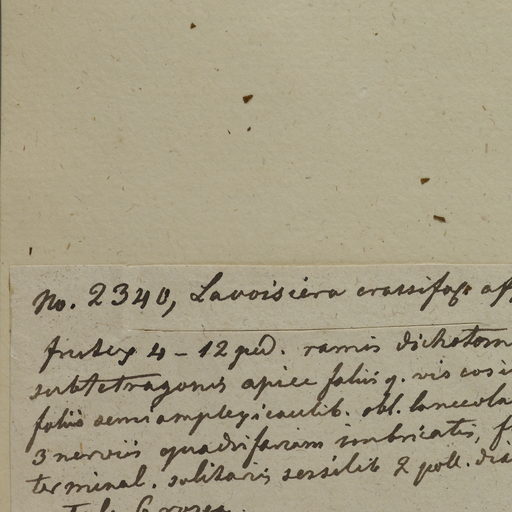 No. 2340, Lavoisiera crassifol. aff
frutex 4 - 12 ped. ramis dichotom
subtetragonis apice foliisq. viscosi
foliis semiamplexicaulib. obl. lanceola
3 nerviis quadrifariam imbricatis, f
terminal. solitariis sessilib 2 poll. dia
6 rosea.